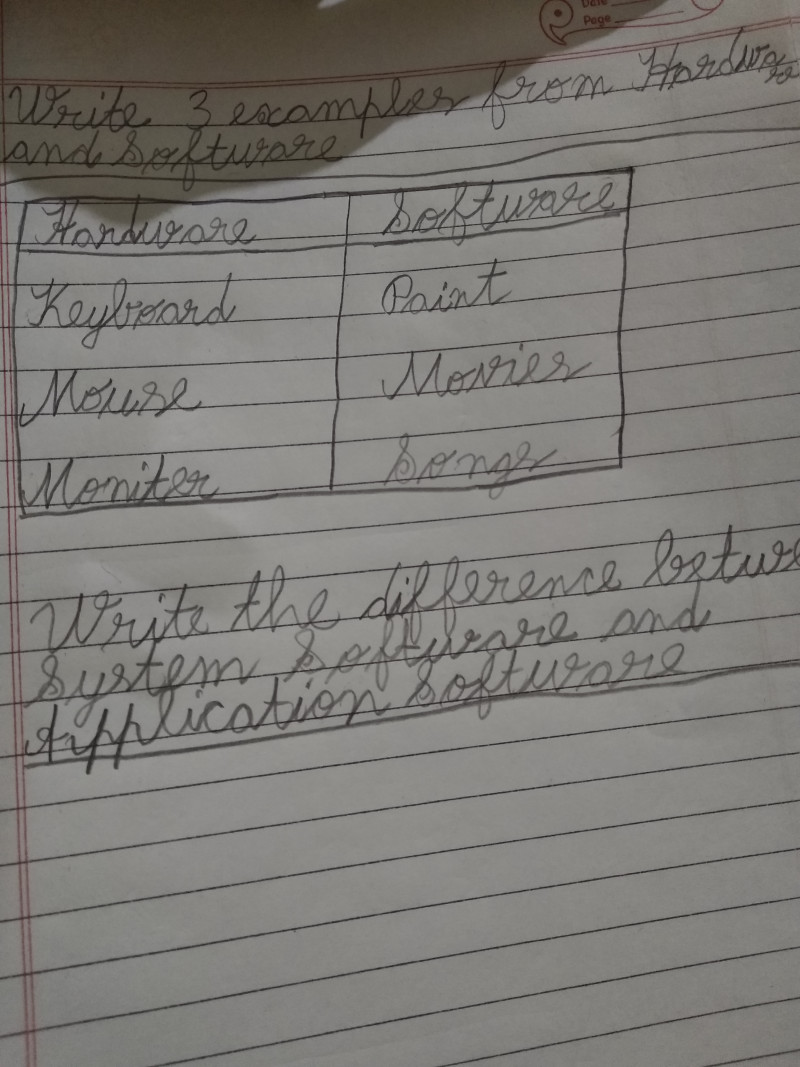 Date
Page
Write 3 examples from Hardware
and Software
Hardware Software
Keyboard Paint
Mouse Movies
Moniter Songs
Write the difference
System Software and
Application Software